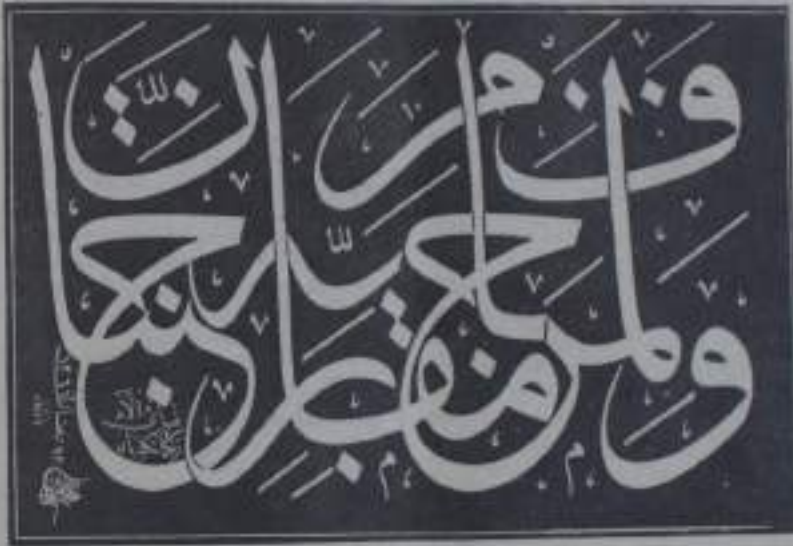 ولمن خاف مقام ربه جنتان